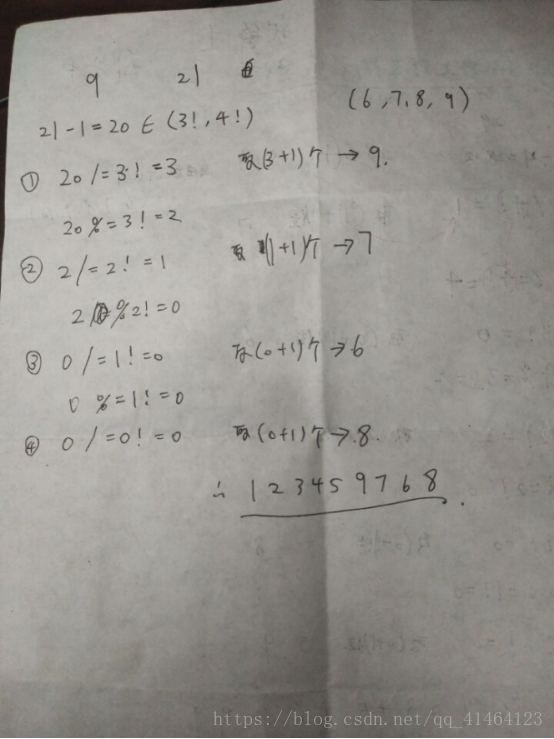 9 21
21-1=20 ∈ (3!, 4!) (6,7,8,9)
① 20/=3!=3 取(3+1)个→9.
20%=3!=2
② 2/=2!=1 取(1+1)个→7
2%2!=0
③ 0/=1!=0 取(0+1)个→6
0%=1!=0
④ 0/=0!=0 取(0+1)个→8.
∴ 1 2 3 4 5 9 7 6 8.
https://blog.csdn.net/qq_41464123